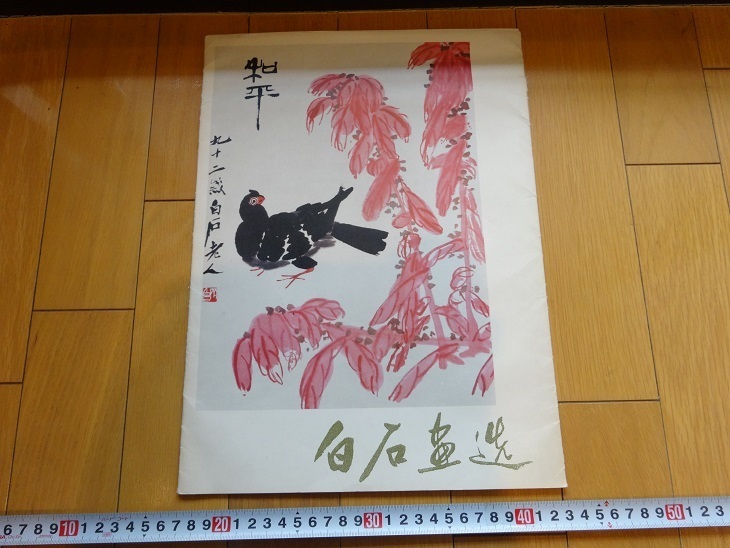 和平
九十二歲白石老人
白石画选
6 7 8 9 10 1 2 3 4 5 6 7 8 9 20 1 2 3 4 5 6 7 8 9 30 1 2 3 4 5 6 7 8 9 40 1 2 3 4 5 6 7 8 9 50 1 2 3